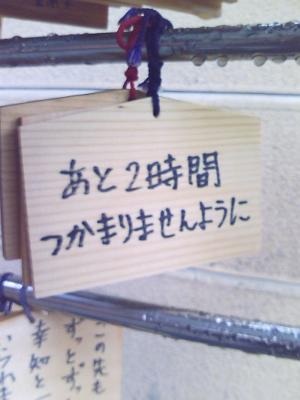 あと2時間
つかまりませんように
この先も
ずっとずっ
幸知と一